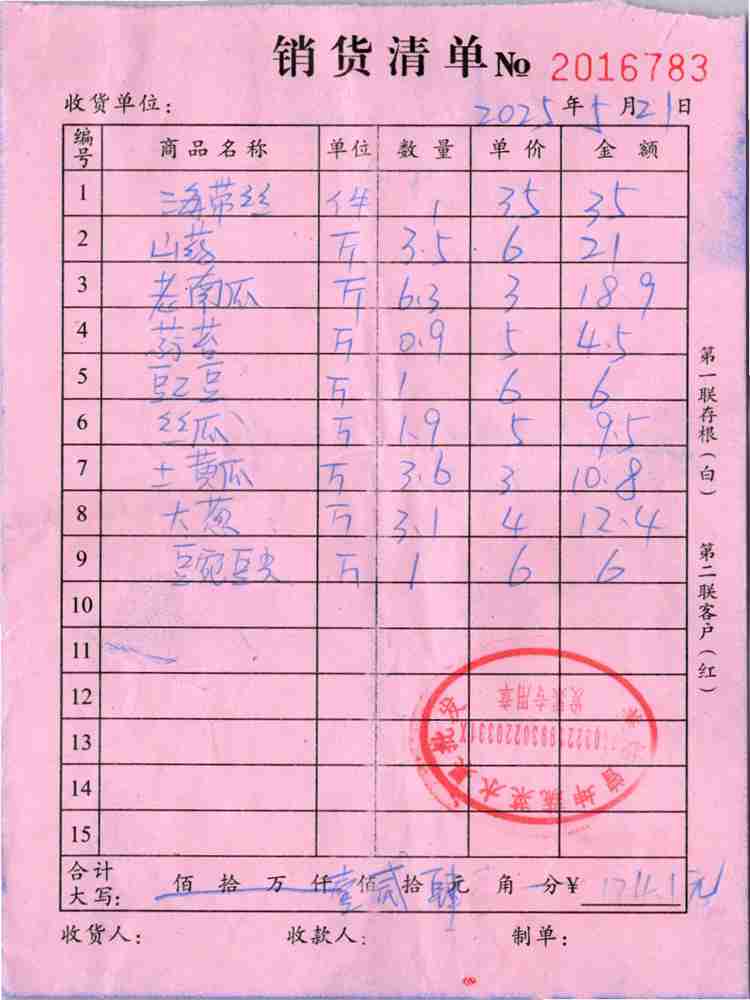 销货清单 № 2016783
收货单位： 2025年5月21日
编号 商品名称 单位 数量 单价 金额
1 海带丝 件 1 35 35
2 山药 斤 3.5 6 21
3 老南瓜 斤 6.3 3 18.9
4 斤 0.9 5 4.5
5 豇豆 斤 1 6 6
6 丝瓜 斤 1.9 5 9.5
7 土黄瓜 斤 3.6 3 10.8
8 大葱 斤 3.1 4 12.4
9 豆豌豆尖 斤 1 6 6
10
11
12
13
14
15
合计大写： 佰拾万仟壹佰贰拾肆元角分¥ 124.1元
收货人： 收款人： 制单：
第一联存根（白） 第二联客户（红）
坤蔬菜水果批发
发票专用章